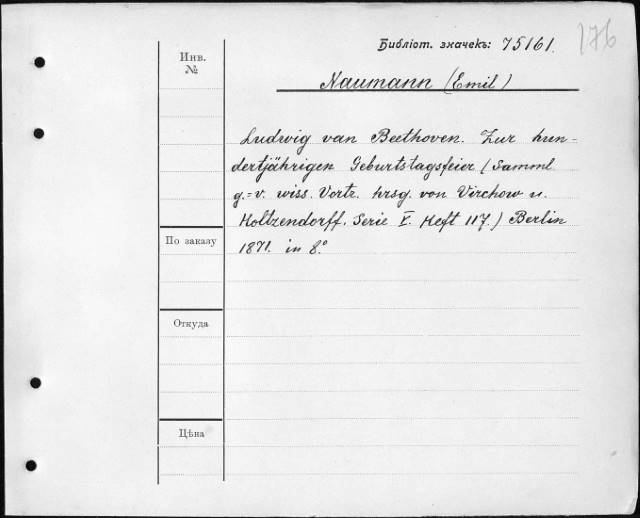 Библіот. значекъ: 75161.
176
Инв.
№
Naumann (Emil)
Ludwig van Beethoven. Zur hun-
dertjährigen Geburtstagsfeier (Samml.
g.=v. wiss. Vortr. hrsg. von Virchow u.
Holtzendorff. Serie V. Heft 117.) Berlin
1871. in 8.°
По заказу
Откуда
Цѣна